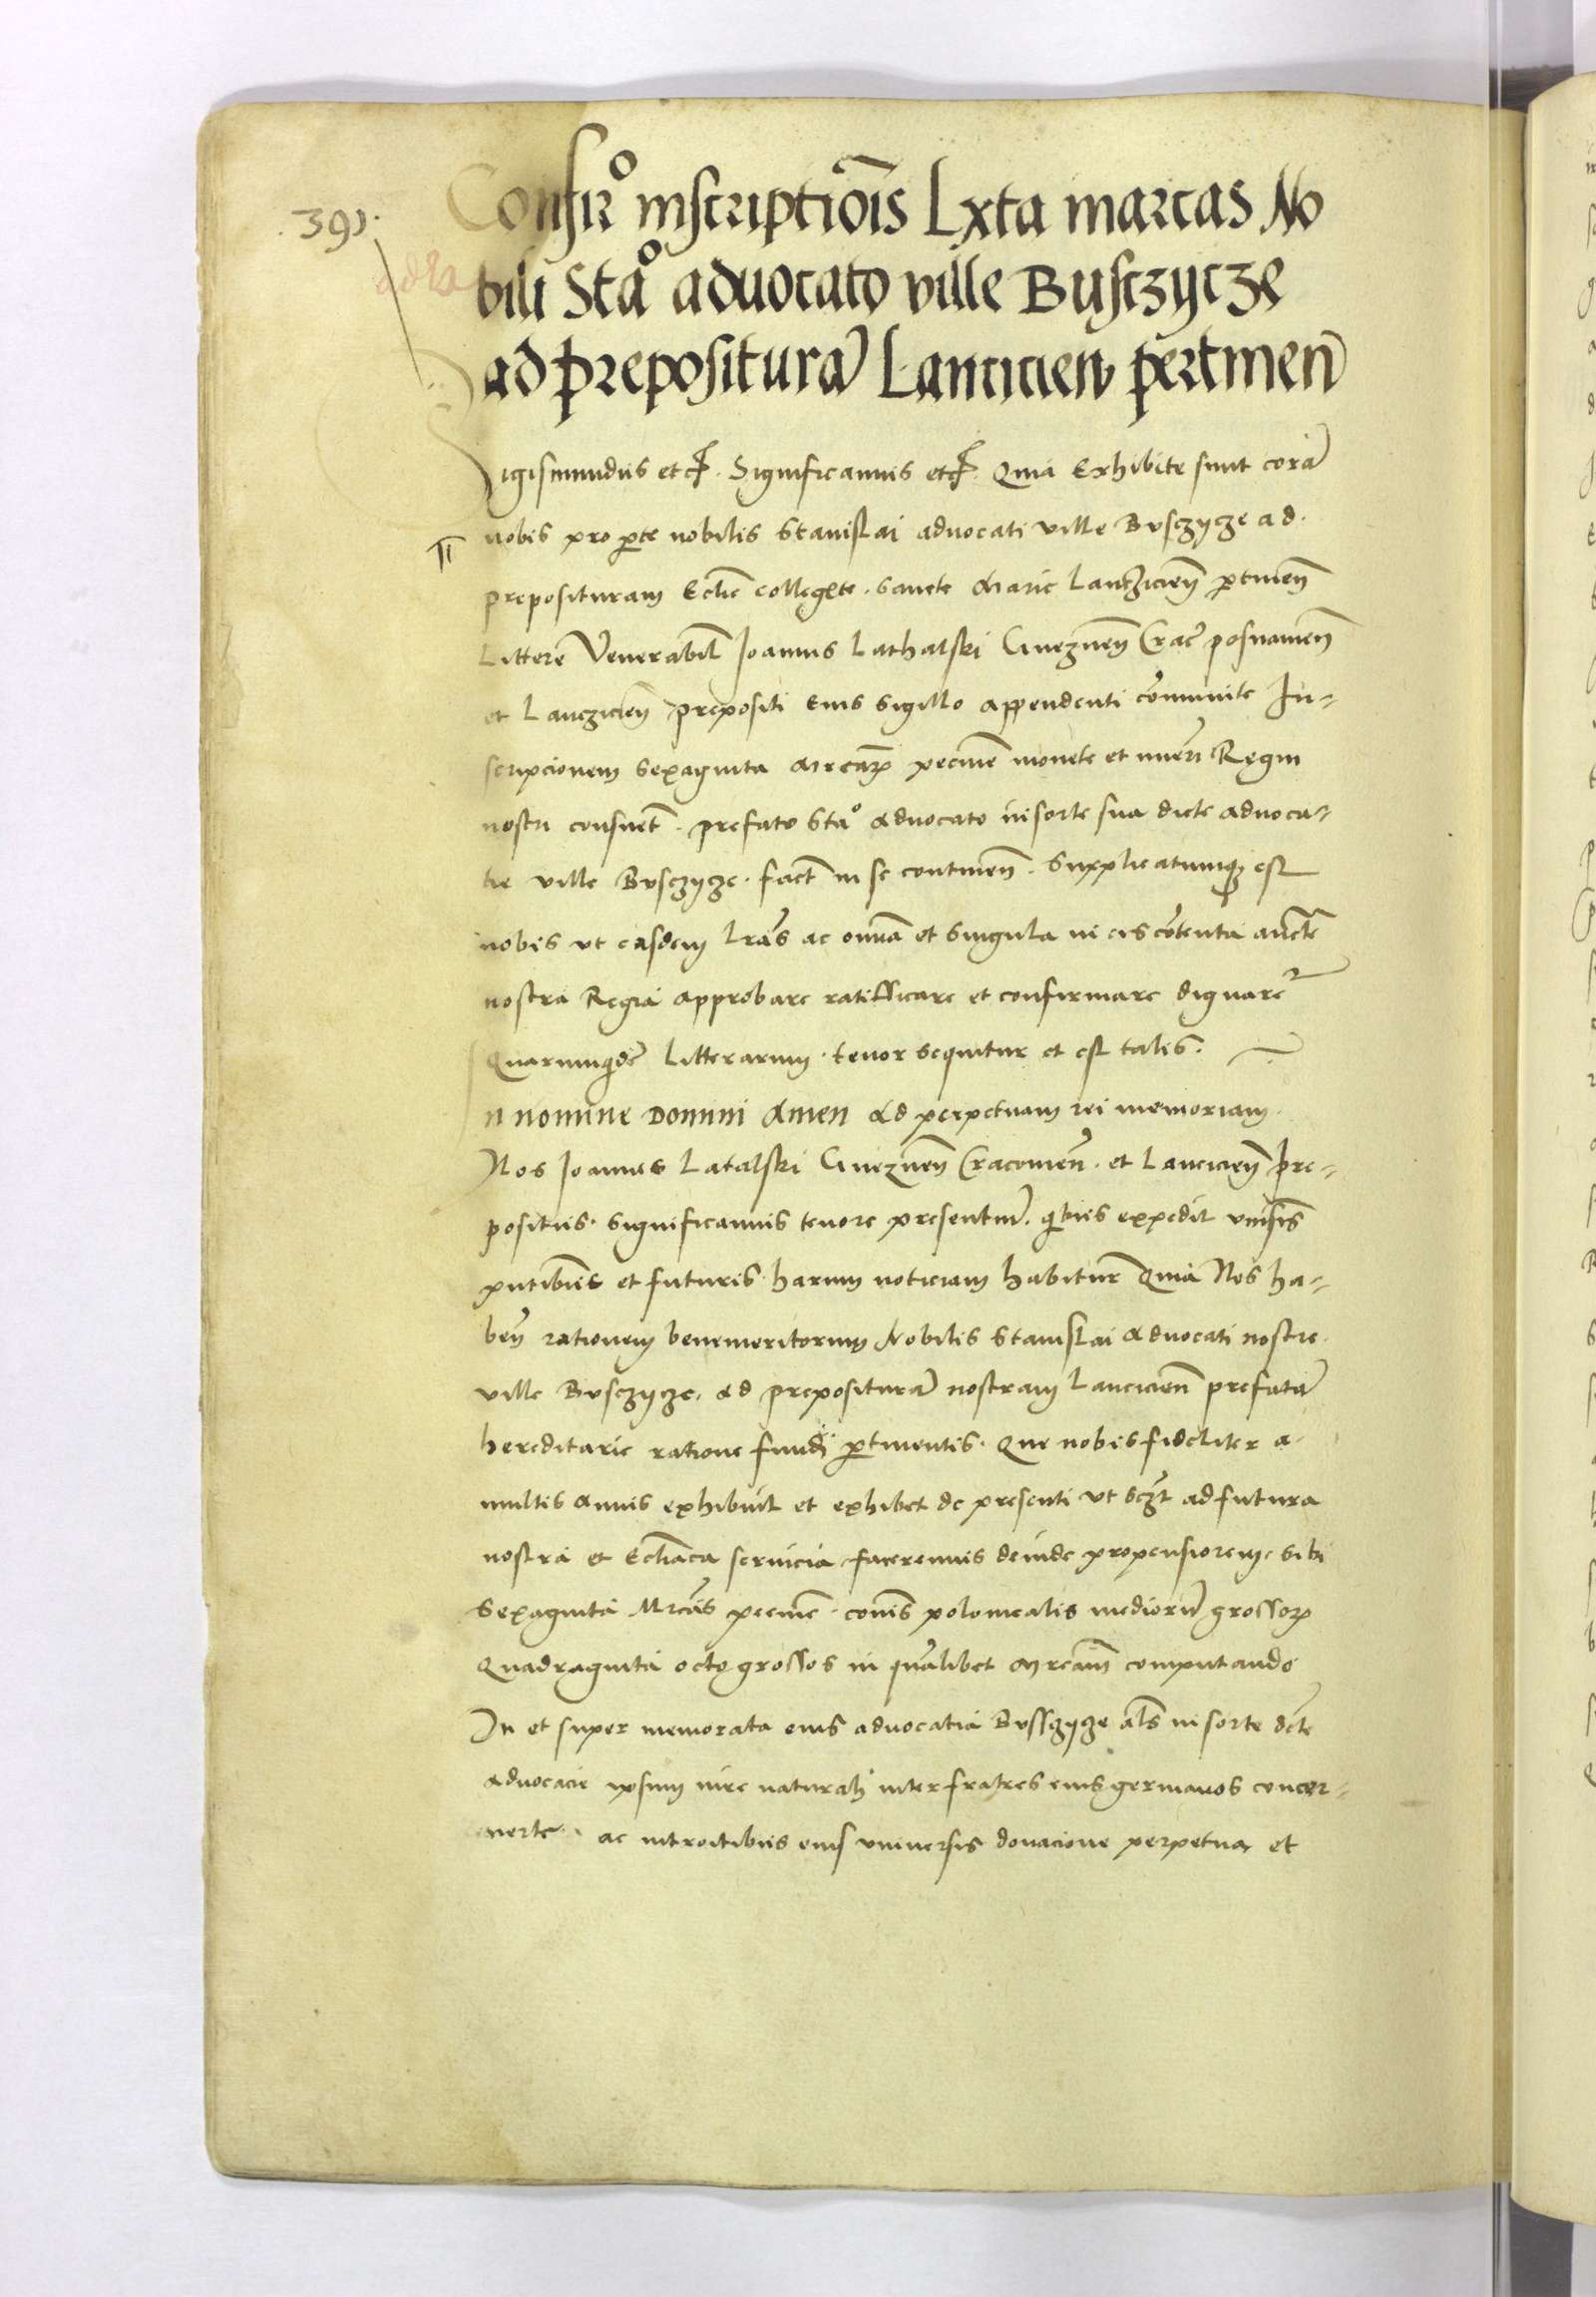 391.
Confir° inscriptiõis Lxta marcas No
bili Sta° advocato ville Busczycze
ad preposituraʒ Lancicieñ pertineñ
igismundus etc. Significamus etc. Quia Exhibite sunt corã
nobis pro pte nobilis Stanislai advocati ville Busczycze ad
preposituram Ecclie collegete. Sancte Marie Lancziciẽn ptineñ
Littere Venerabil Joannis Lathalski Gnezneñ Crac posnanieñ
et Lancziciẽn prepositi Eius Sigillo appendenti cõmunite In-
scripcionem Sexaginta Mrcarꝝ pecunie monete et nueri Regni
nostri consuet. prefato Sta° advocato in sorte sua dicte advoca-
tie ville Busczycze. fact in se continen. Supplicatumqꝫ est
nobis ut easdem lrãs ac omnia et singula in eis cõtenta aucte
nostra Regia approbare ratifficare et confirmare dignarer
Quarumquidẽ Litterarum. tenor sequitur et est talis.
n nomine Domini Amen Ad perpetuam rei memoriam.
Nos Joannes Latalski Gnezneñ Cracovieñ. et Lancicieñ pre-
positus. Significamus tenore presentiũ. qbus expedit univsis
pntibus et futuris. harum noticiam habitur Quia Nos ha-
ben rationem benemeritorum Nobilis Stanislai Advocati nostre
ville Busczycze. Ad preposituraʒ nostram Lancicieñ prefatã
hereditarie ratione fundi ptinentis. Que nobis fideliter a
multis Annis exhibuit et exhibet de presenti ut ad futura
nostra et servicia faceremus deinde propensiorem Sibi
Sexaginta Mrcas pecunie. cõnis polonicalis mediorũ grossoꝝ
Quadraginta octo grossos in qualibet Mrcam computando
In et super memorata eius advocatia Bussczycze als in sorte dcte
advocacie ipsum iure naturali inter fratres eius germanos concer-
nente. ac introitibus eius universis donacione perpetua et